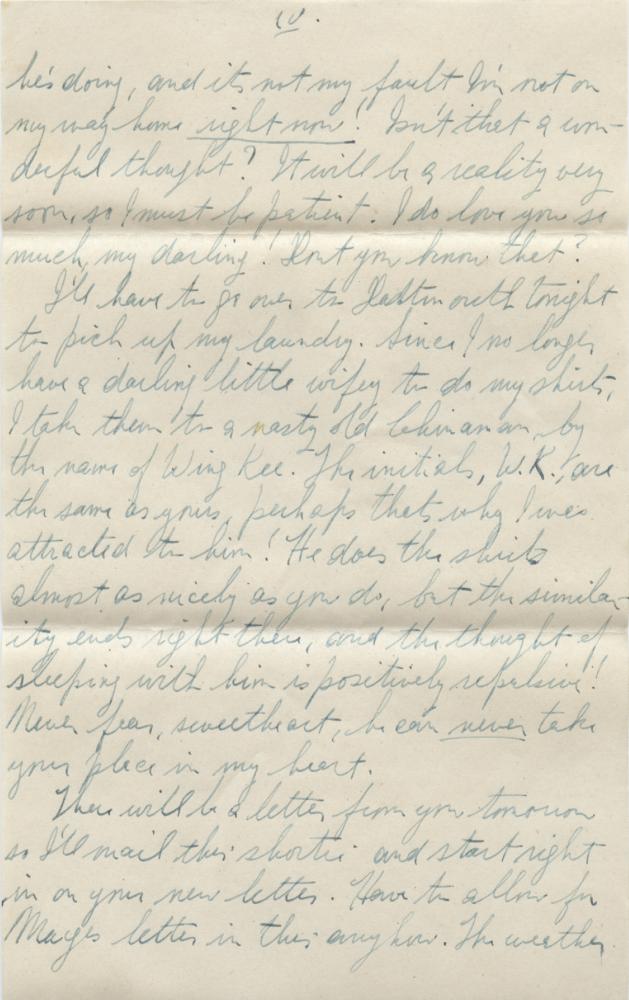 IV.
he's doing, and it's not my fault I'm not on
my way home right now! Isn't that a won-
derful thought? It will be a reality very
soon, so I must be patient. I do love you so
much, my darling! Don't you know that?
I'll have to go over to Dartmouth tonight
to pick up my laundry. Since I no longer
have a darling little wifey to do my shirts,
I take them to a nasty old Chinaman, by
the name of Wing Kee. The initials, W.K., are
the same as yours, perhaps that's why I was
attracted to him! He does the shirts
almost as nicely as you do, but the similar-
ity ends right there, and the thought of
sleeping with him is positively repulsive!
Never fear, sweetheart, he can never take
your place in my heart.
There will be a letter from you tomorrow
so I'll mail this shortie and start right
in on your new letter. Have to allow for
Marge's letter in this anyhow. The weather